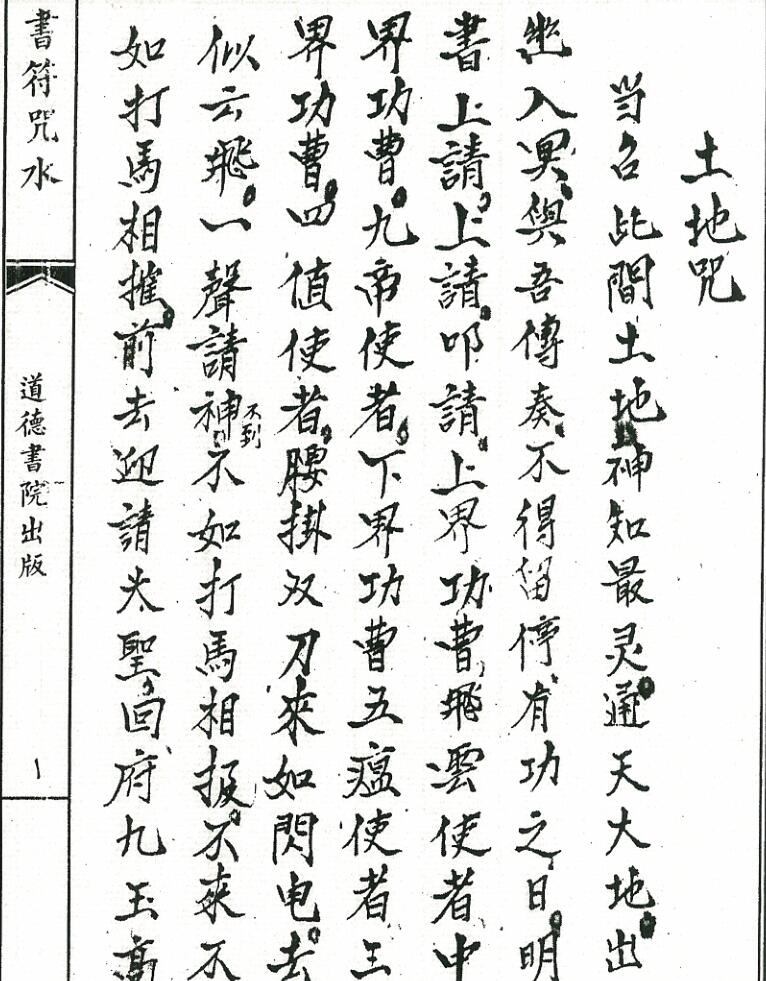 土地咒
当召此間土地神知最灵通天大地出
幽入冥與吾傳奏不得留停有功之日明
書上請上請叩請上界功曹飛雲使者中
界功曹九帝使者下界功曹五瘟使者三
界功曹四值使者腰掛双刀來如閃电去
似云飛一聲請神不到不如打馬相报不來不
如打馬相摧前去迎請大聖回府九玉高
書符咒水
道德書院出版
一